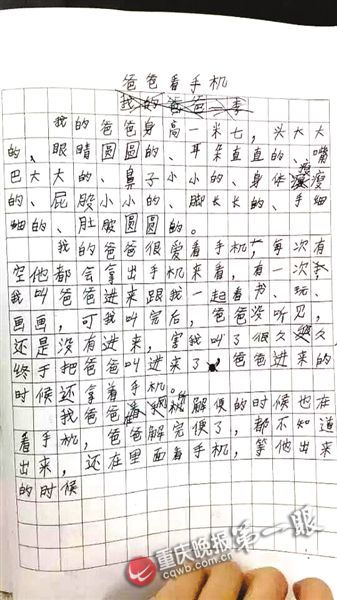 爸爸看手机
我的爸爸身高一米七，头大大
的、眼睛圆圆的、耳朵直直的、嘴
巴大大的、鼻子小小的、身体瘦瘦
的、屁股小小的、脚长长的、手细
细的、肚股圆圆的。
我的爸爸很爱看手机，每次有
空他都会拿出手机来看，有一次，
我叫爸爸进来跟我一起看书、玩、
画画，可我叫完后，爸爸没听见，
还是没有进来，害我叫了很久，
终于把爸爸叫进来了，爸爸进来的
时候还拿着手机。
我爸爸解便的时候也在
看手机，爸爸解完便了，都不知道
出来，还在里面看手机，等他出来
的时候
重庆晚报第一眼
www.cqwb.com.cn